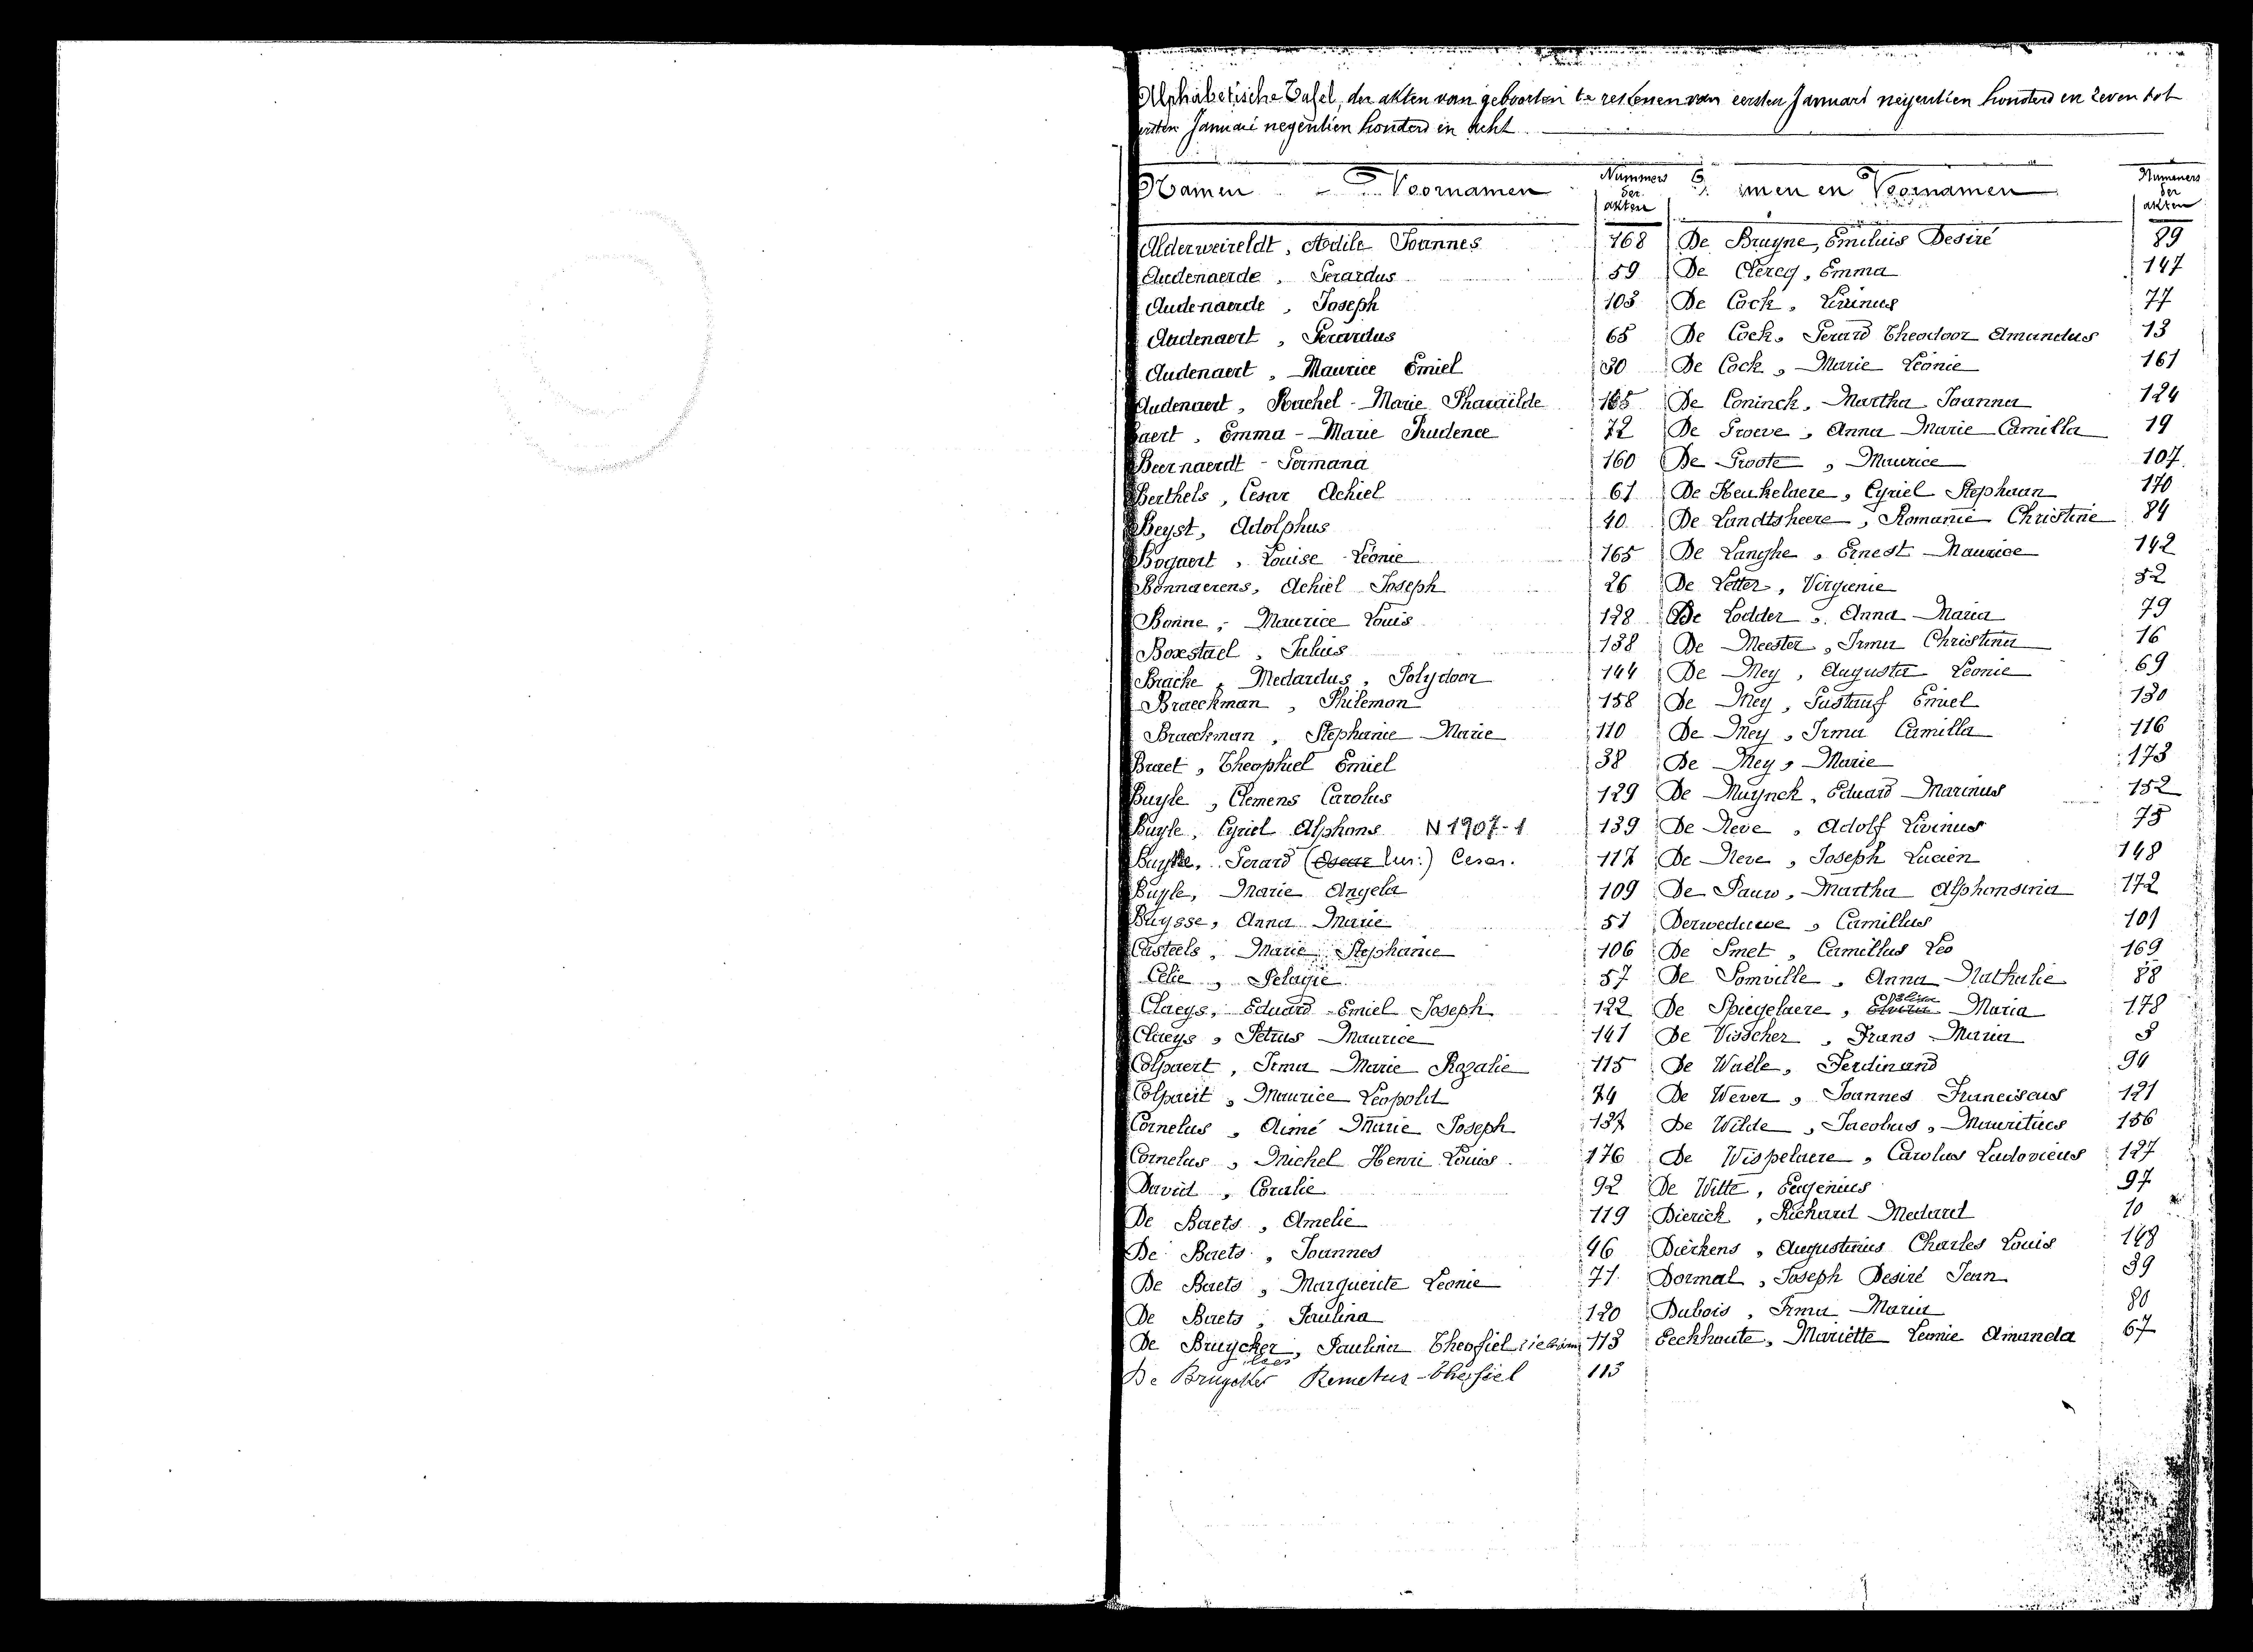 Alphabetische Tafel, der akten van geboorten te rekenen van eersten Januari negentien honderd en zeven tot
eersten Januari negentien honderd en acht
Namen Voornamen
Nummers der akten
men en Voornamen
Nummers der akten
Alderweireldt, Odile Joannes 168
Audenaerde, Gerardus 59
Audenaerde, Joseph 103
Audenaert, Gerardus 65
Audenaert, Maurice Emiel 30
Audenaert, Rachel Marie Pharaïlde
aert, Emma-Marie Prudence 72
Beernaerdt - Germana 160
Berthels, Cesar Achiel 61
Beyst, Adolphus 40
Bogaert, Louise Léonie 165
Bonnaerens, Achiel Joseph 26
Bonne, Maurice Louis 128
Boxstael, Julius 138
Brache, Medardus, Polydoor 144
Braeckman, Philemon 158
Braeckman, Stephanie Marie 110
Braet, Theophiel Emiel 38
Buyle, Clemens Carolus 129
Buyle, Cyriel Alphons N 1907-1 139
Gerard ( ) Cesar. 117
Buyle, Marie Angela 109
Buysse, Anna Marie 51
Casteels, Marie Stephanie 106
Celie, Pelagie 57
Claeys, Eduard Emiel Joseph 122
Claeys, Petrus Maurice 141
Colpaert, Irma Marie Rozalie 115
Colpaert, Maurice Leopold 74
Cornelus, Aimé Marie Joseph 137
Cornelus, Michel Henri Louis 176
David, Coralie 92
De Baets, Amelie 119
De Baets, Joannes 46
De Baets, Marguerite Leonie 71
De Baets, Paulina 120
De Bruycker, Paulina Theofiel 113
De Bruycker Remetus Theofiel 113
De Bruyne, Emiluis Desiré 89
De Clercq, Emma 147
De Cock, Livinus 77
De Cock, Gerard Theodoor Amandus 13
De Cock, Marie Léonie 161
De Coninck, Martha Joanna 124
De Groeve, Anna Marie Camilla 19
De Groote, Maurice 107
De Keukelaere, Cyriel Stephaan 170
De Landtsheere, Romanie Christine 84
De Langhe, Ernest Maurice 142
De Letter, Virginie 52
De Lodder, Anna Maria 79
De Meester, Irma Christina 16
De Mey, Augusta Leonie 69
De Mey, Gustaaf Emiel 130
De Mey, Irma Camilla 116
De Mey, Marie 173
De Muynck, Eduard Marinus 152
De Neve, Adolf Livinus 75
De Neve, Joseph Lucien 148
De Pauw, Martha Alphonsina 172
Derweduwe, Camillus 101
De Smet, Camillus Leo 169
De Somville, Anna Nathalie 88
De Spiegelaere, Maria 178
De Visscher, Frans Maria
De Waele, Ferdinand 94
De Wever, Joannes Franciscus 121
De Wilde, Jacobus, Mauritius 156
De Wispelaere, Carolus Ludovicus 127
De Witte, Eugenius 97
Dierick, Richard Medard 10
Dierkens, Augustinus Charles Louis
Dormal, Joseph Desiré Jean 39
Dubois, Irma Maria 80
Eeckhoute, Mariëtte Leonie Amanda 67